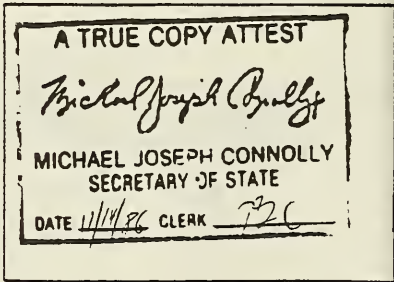 A TRUE COPY ATTEST
Michael Joseph Connolly
MICHAEL JOSEPH CONNOLLY
SECRETARY OF STATE
DATE 11/14/86 CLERK